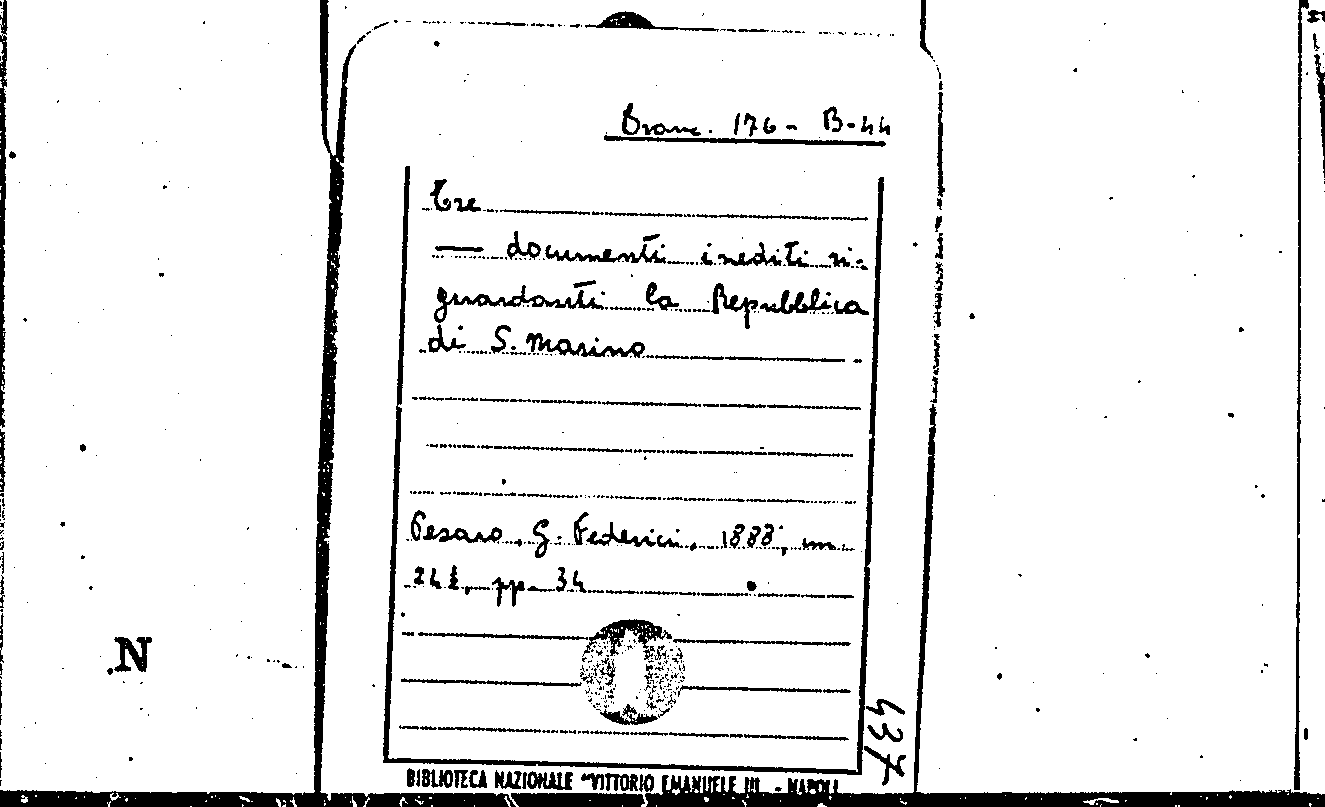 Branc. 176 - B-44
Tre
— documenti inediti ri-
guardanti la Repubblica
di S. Marino
Pesaro, G. Federici, 1888, in-
24½, pp. 34
N
437
BIBLIOTECA NAZIONALE "VITTORIO EMANUELE III - NAPOLI